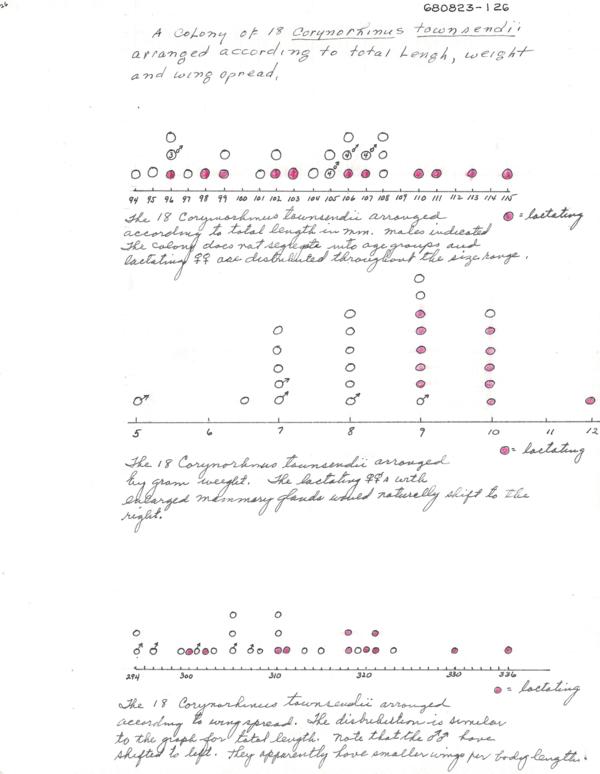 680823-126
A Colony of 18 Corynorhinus townsendii
arranged according to total Lengh, weight
and wing spread.
3♂ 4♂ 4♂
4♂
94 95 96 97 98 99 100 101 102 103 104 105 106 107 108 109 110 111 112 113 114 115
The 18 Corynorhinus townsendii arranged
= lactating
according to total length in mm. males indicated
The colony does not segregate into age groups and
lactating ♀♀ are distributed throughout the size range.
5 6 7 8 9 10 11 12
= lactating
The 18 Corynorhinus townsendii arranged
by gram weight. The lactating ♀♀s with
enlarged mammary glands would naturally shift to the
right.
294 300 310 320 330 336
= lactating
The 18 Corynorhinus townsendii arranged
according to wing spread. The distribution is similar
to the graph for total length. Note that the ♂♂ have
shifted to left. They apparently have smaller wings per body length.